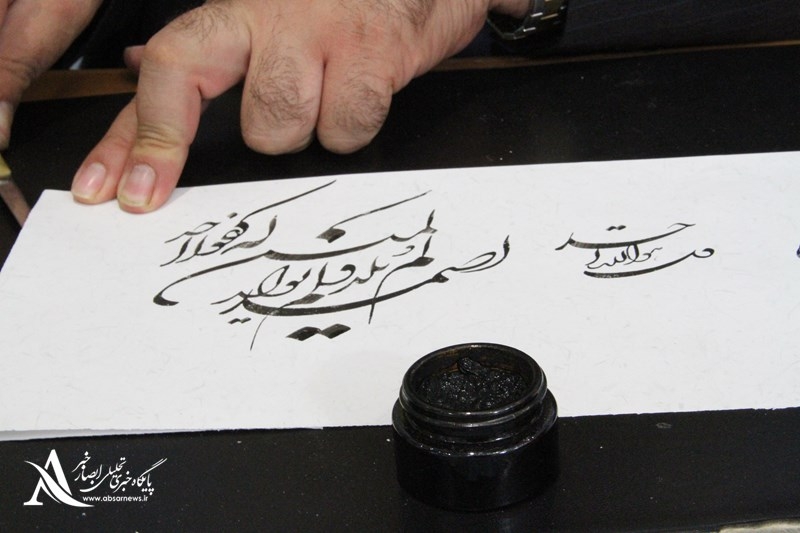 قل هو الله احد
الصمد لم یلد ولم یولد
لم یکن له کفوا احد
پایگاه خبری تحلیلی ابصار خبر
www.absarnews.ir